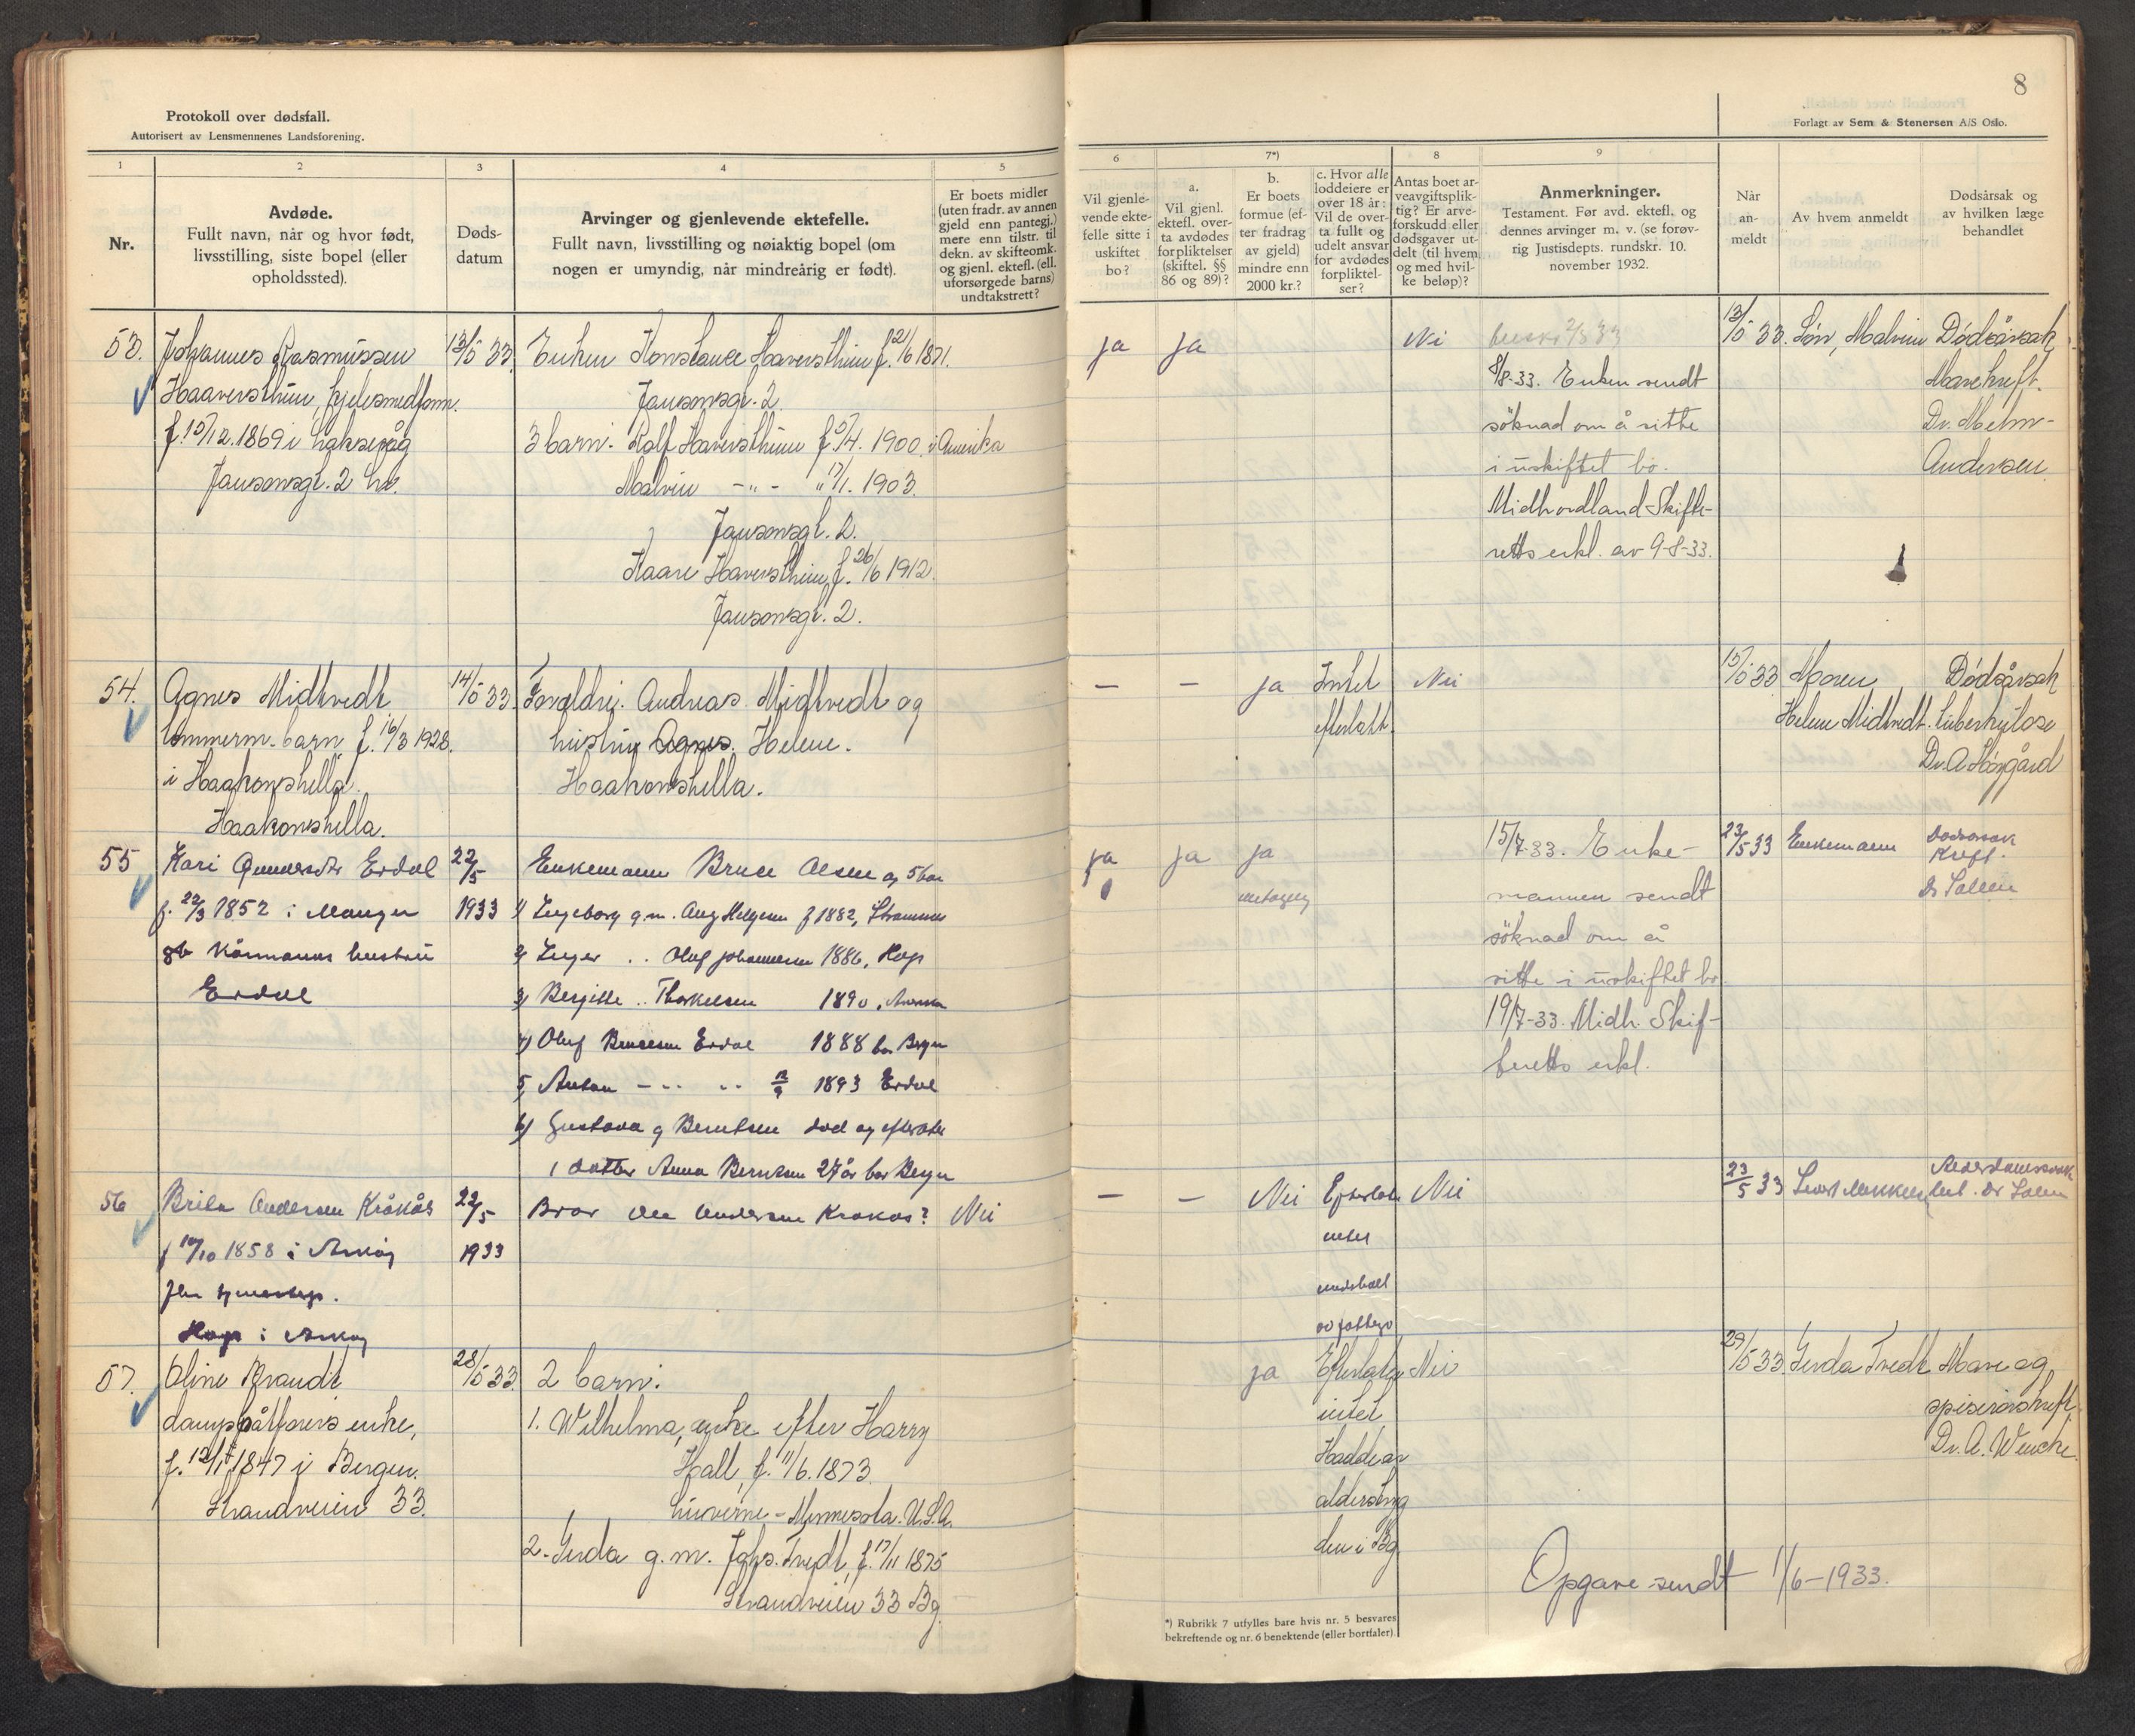 Protokoll over dødsfall.
Autorisert av Lensmennenes Landsforening.
1
2
3
4
5
Nr.
Avdøde.
Fullt navn, når og hvor født,
livsstilling, siste bopel (eller
opholdssted).
Døds-
datum
Arvinger og gjenlevende ektefelle.
Fullt navn, livsstilling og nøiaktig bopel (om
nogen er umyndig, når mindreårig er født).
Er boets midler
(uten fradr. av annen
gjeld enn pantegj.)
mere enn tilstr. til
dekn. av skifteomk.
og gjenl. ektefl. (ell.
uforsørgede barns)
undtakstrett?
53.
Johannes Rasmussen
Haaversthun, gjelesmedform.
f. 15/12.1869 i Laksevåg
Jansonsgt. 2 hr.
13/5 33.
Enken Konstance Haaversthun f. 21/6 1871.
Jansonsgt. 2.
3 barn: Rolf Haversthun f. 5/4. 1900 i Amerika
Malvin - " - " 17/1. 1903.
Jansonsgt. 2.
Kaare Haversthun, f. 26/6 1912.
Jansonsgt. 2.
54.
Agnes Midtvedt
tømmerm. barn f. 16/3 1928.
i Haakonshella.
Haakonshella.
14/5 33.
Foreldre: Andreas Midtvedt og
hustru Agnes Helene.
Haakonshella.
55
Kari Gundersdtr Erdal
f. 22/3 1852 i Manger
gb kårmanns hustru
Erdal
22/5
1933
Enkemann Bruce Olsen og 5 barn
1) Ingeborg g.m. Aug Helgesen f 1882, Strammes
2) Inger .. Oluf Johannesen 1886, Hop
3) Bergitte .. Thorkelsen 1890, Amerika
4) Oluf Erdal 1888 bor Bergen
5) Anton - .. .. 1893 Erdal
6) Gustava g Berntsen død og efterlater
1 datter Anna Berntsen 27 år bor Bergen
56
Brita Andersen Kråkås
f 10/10 1858 i Askøy
Hop i Askøy
22/5
1933
Bror Ole Andersen Krokås?
Nei
57.
Oline Brandt
dampbåtførers enke,
f. 12/11 1847 i Bergen.
Strandveien 33.
28/5 33.
2 barn:
1. Wilhelma, enke efter Harry
Hall, f. 11/6. 1873.
Luverne - Minnesota. U.S.A.
2. Gerda g.m. Johs. Tvedt, f. 17/11 1875
Strandveien 33 Bg.
8
Forlagt av Sem & Stenersen A/S Oslo.
6
7*)
8
9
Vil gjenle-
vende ekte-
felle sitte i
uskiftet
bo?
a.
Vil gjenl.
ektefl. over-
ta avdødes
forpliktelser
(skiftel. §§
86 og 89)?
b.
Er boets
formue (ef-
ter fradrag
av gjeld)
mindre enn
2000 kr.?
c. Hvor alle
loddeiere er
over 18 år:
Vil de over-
ta fullt og
udelt ansvar
for avdødes
forpliktel-
ser?
Antas boet ar-
veavgiftsplik-
tig? Er arve-
forskudd eller
dødsgaver ut-
delt (til hvem
og med hvil-
ke beløp)?
Anmerkninger.
Testament. Før avd. ektefl. og
dennes arvinger m. v. (se forøv-
rig Justisdepts. rundskr. 10.
november 1932.
Når
an-
meldt
Av hvem anmeldt
Dødsårsak og
av hvilken læge
behandlet
ja ja Nei
8/8-33. Enken sendt
søknad om å sitte
i uskiftet bo.
Midhordland Skifte-
retts erkl. av 9-8-33.
13/5 33.
Søn, Malvin
Dødsårsak
Mavekreft.
Dr. Mehn-
Andersen.
- - ja Intet
efterlatt
Nei
15/5 33
Moren
Helene Midtvedt.
Dødsårsak
tuberkulose
Dr. A. Horgård
ja ja ja
15/7-33. Enke-
mannen sendt
søknad om å
sitte i uskiftet bo
19/7-33. Midh. Skif-
teretts erkl.
23/5 33
Enkemann
Dødsårsak
Kreft.
Dr Solem
- - Nei Efterlater
intet
understøtt
av fattigv
Nei
23/5 33
Alderdomssvakhet. Dr Solem
ja Efterlater
intet
Hadde av
alderstrygden i Bg
Nei
29/5 33.
Gerda Tvedt
Mave og
spiserørskreft.
Dr. A. Wencke.
Opgave sendt 1/6-1933.
*) Rubrikk 7 utfylles bare hvis nr. 5 besvares
bekreftende og nr. 6 benektende (eller bortfaler).